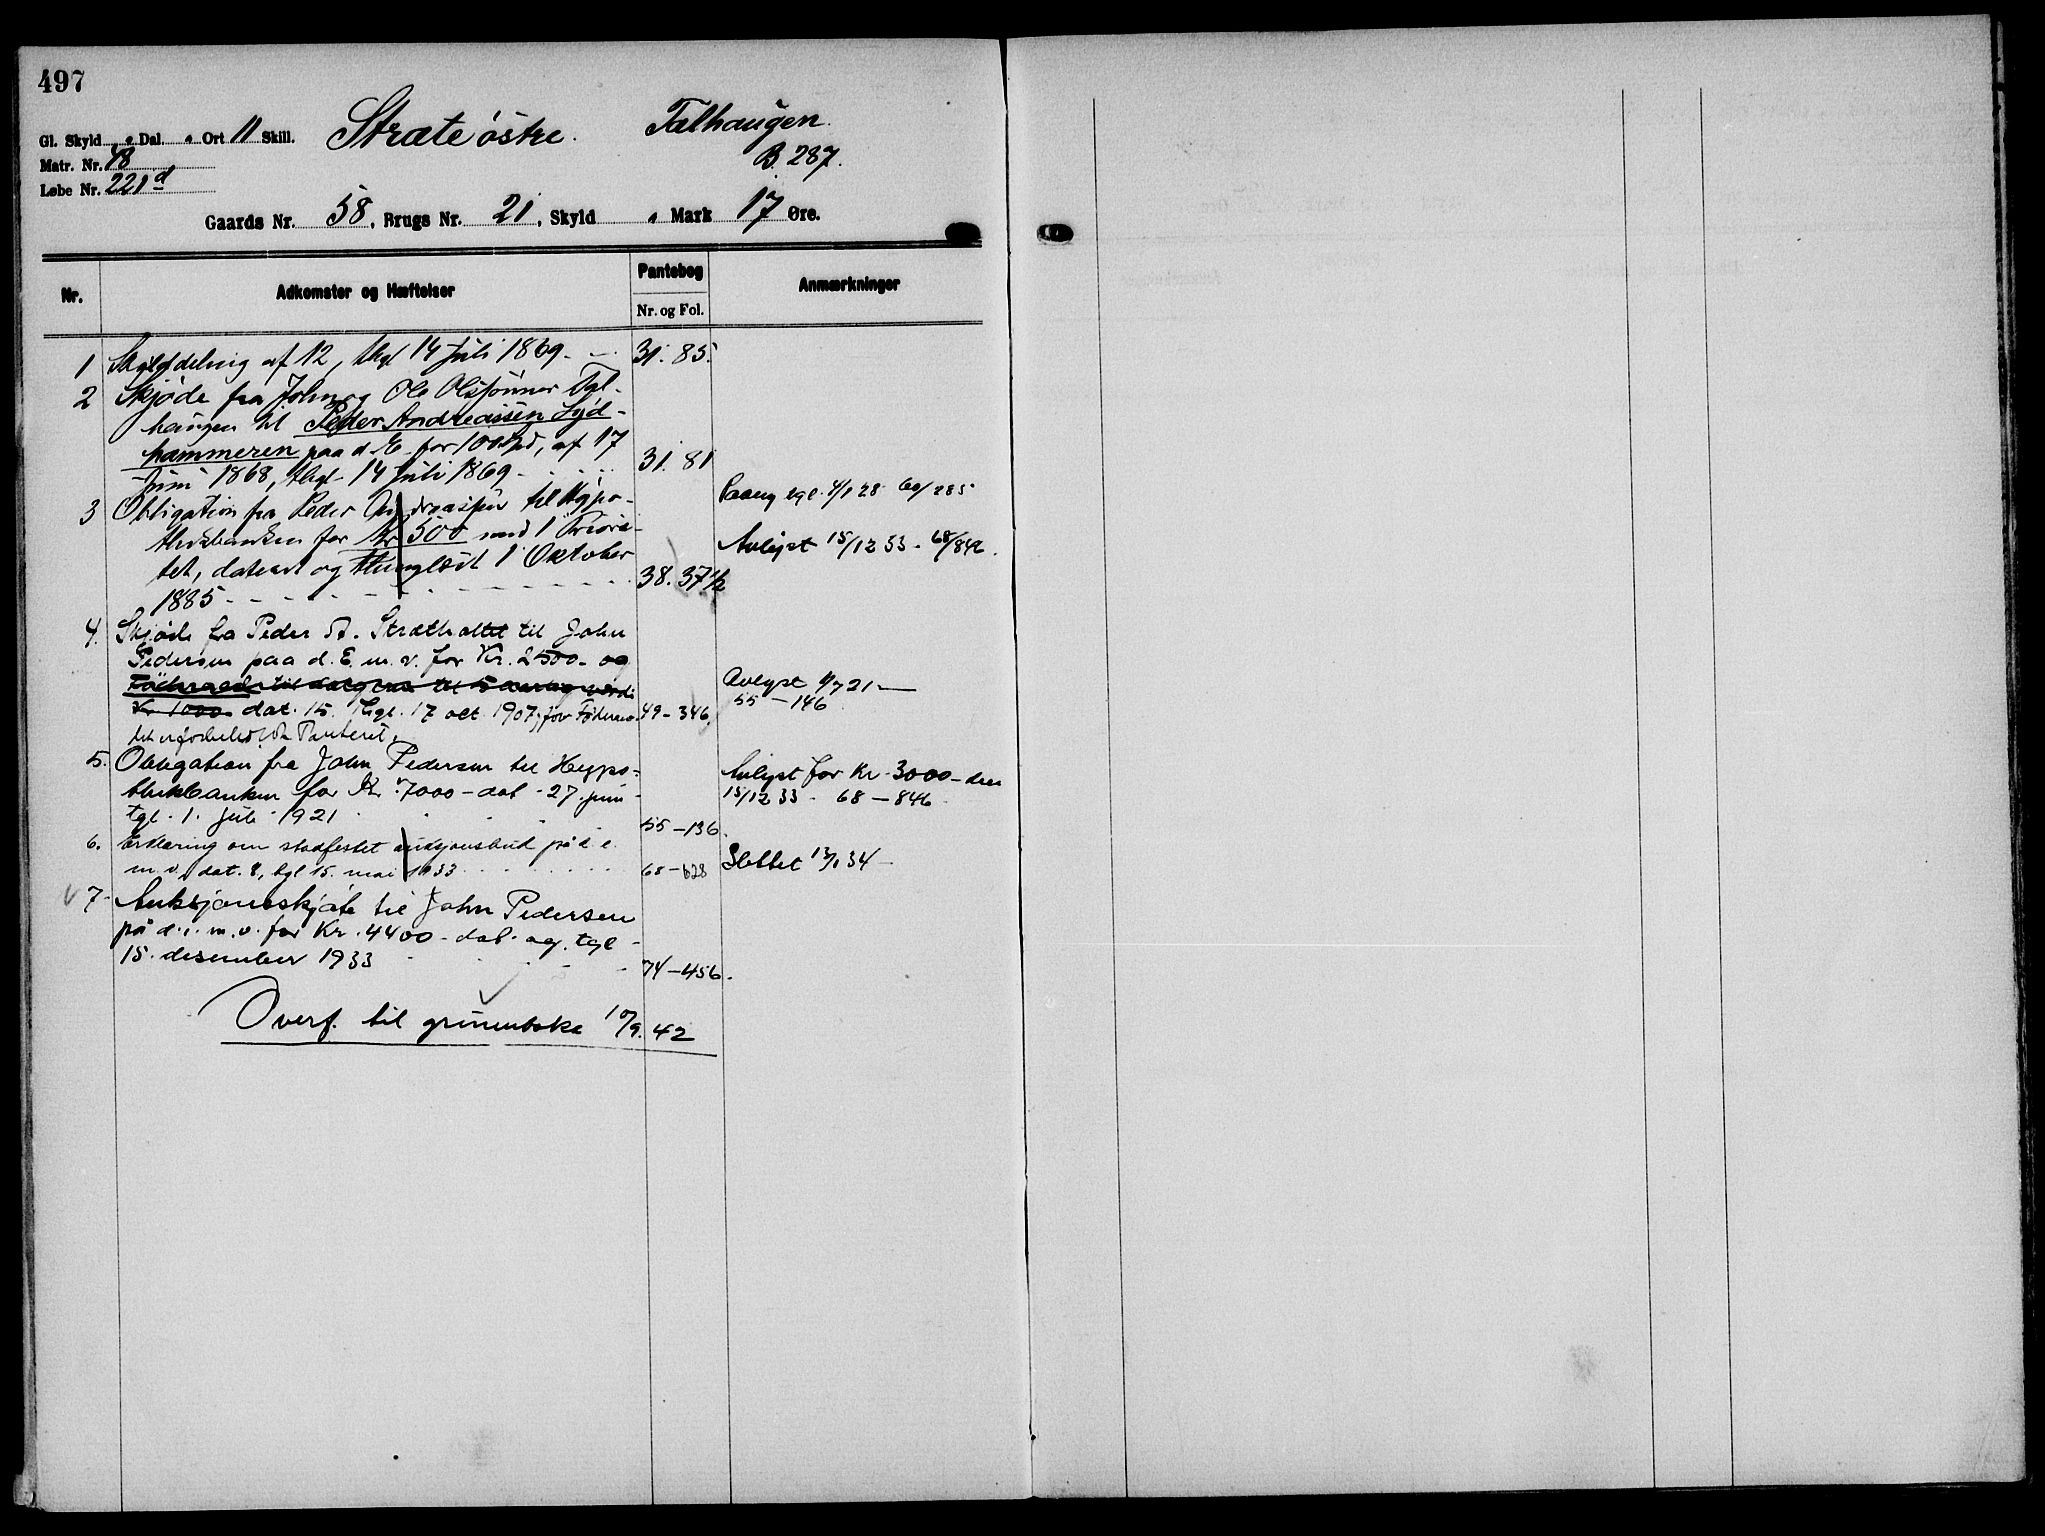 497
Gl. Skyld " Dal. " Ort 11 Skill. Stræte østre. Tælhaugen.
Matr. Nr. 48 B. 287.
Løbe Nr. 221 d
Gaards Nr. 58, Brugs Nr. 21, Skyld " Mark 17 Øre.
Nr. Adkomster og Hæftelser Pantebog Anmærkninger
Nr. og Fol.
1 Skylddeling af 12, thgl 14 Juli 1869. 31. 85.
2 Skjøde fra John og Ole Olssønner Tæl-
haugen til Peder Andreassen Lyd-
hammeren paa d. E. for 100 Spd, af 17
Juni 1868, thgl. 14 Juli 1869. 31. 81
3 Obligation fra Peder Andreassen til Hypo- tgl. 4/1 28 60/285
thekbanken for Kr 500 med 1 Priori- Avlyst 15/12 33. 68/846.
tet, datert og thinglæst 1 Oktober
1885 38. 37 1/2
4. Skjøde fra Peder A. Strætholtet til John
Pedersen paa d. E. m. v. for Kr. 2500. og
Føderaad til 5 aarlig værdi Avlyst 1/7 21 —
Kr 1000 dat. 15. thgl. 17 oct. 1907, for Føderaa- 49-346, 55 — 146
det Panteret.
5. Obligation fra John Pedersen til Hypo- Avlyst for Kr. 3000 – den
thekbanken for Kr. 7000 – dat. 27. juni 15/12 33 - 68 – 846
tgl. 1. juli 1921 55–136.
6. Erklæring om stadfestet auksjonsbud på d. e. Slettet 13/1 34 –
m. v. dat. 8, tgl 15. mai 1933 68–628
7. Auksjonsskjøte til John Pedersen
på d. e. m. v. for Kr. 4400 – dat. og tgl.
15. desember 1933 74–456.
Overf. til grunnboka 10/9. 42